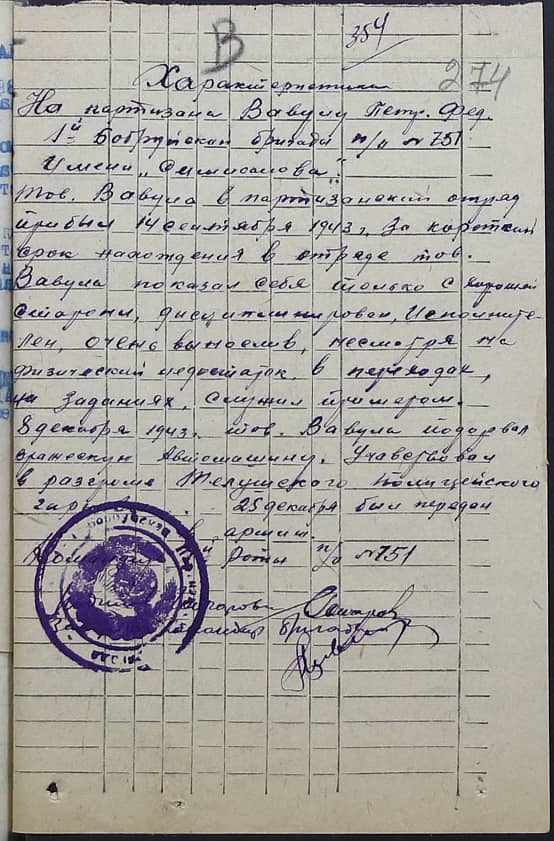 В
354
274
Характеристика
На партизана Вавулу Петр. Фед.
1й Бобруйской бригады п/о №751
Имени
Тов. Вавула в партизанский отряд
прибыл 14 сентября 1943 г. За короткий
срок нахождения в отряде тов.
Вавула показал себя только с хорошей
стороны, дисциплинирован, Исполните-
лен, очень вынослив, несмотря на
физический недостаток в переходах,
на Заданиях, Служил примером.
8 декабря 1943г. тов. Вавула подорвал
вражескую Автомашину. Учавствовал
в разгроме Телушского Полицейского
25 декабря был передан
в армию.
Роты п/о №751
бригады